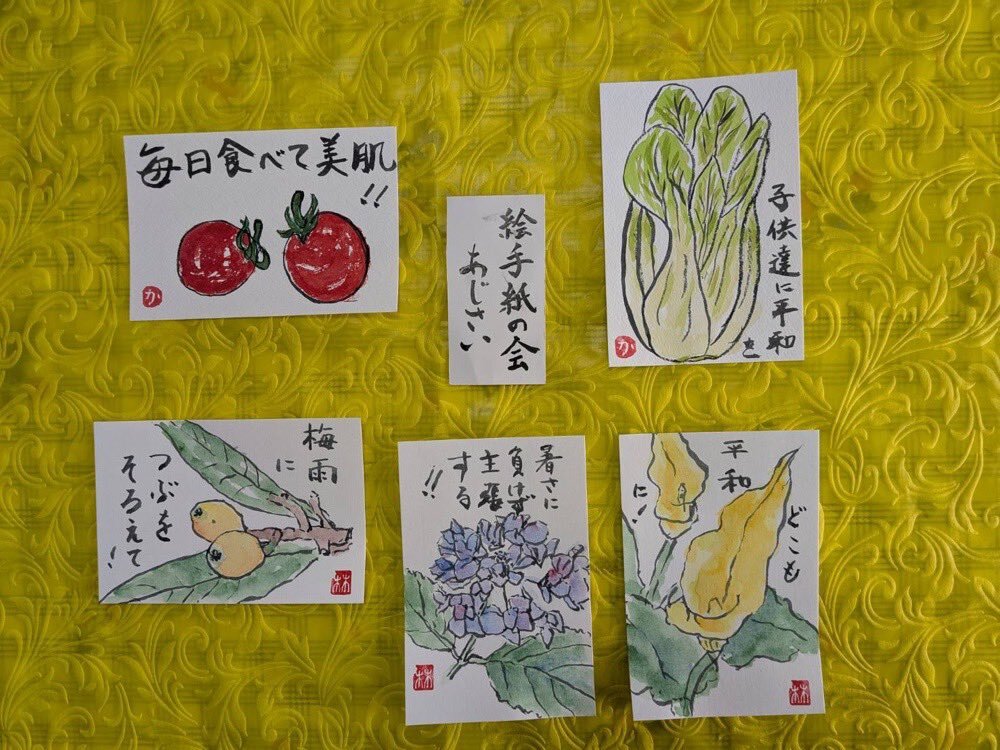 毎日食べて美肌
!!
か
絵手紙の会
あじさい
子供達に平和
を
か
梅雨
に
つぶを
そろえて!
林
暑さに
負けず
主張
する
!!
林
どこも
平和
に!
林